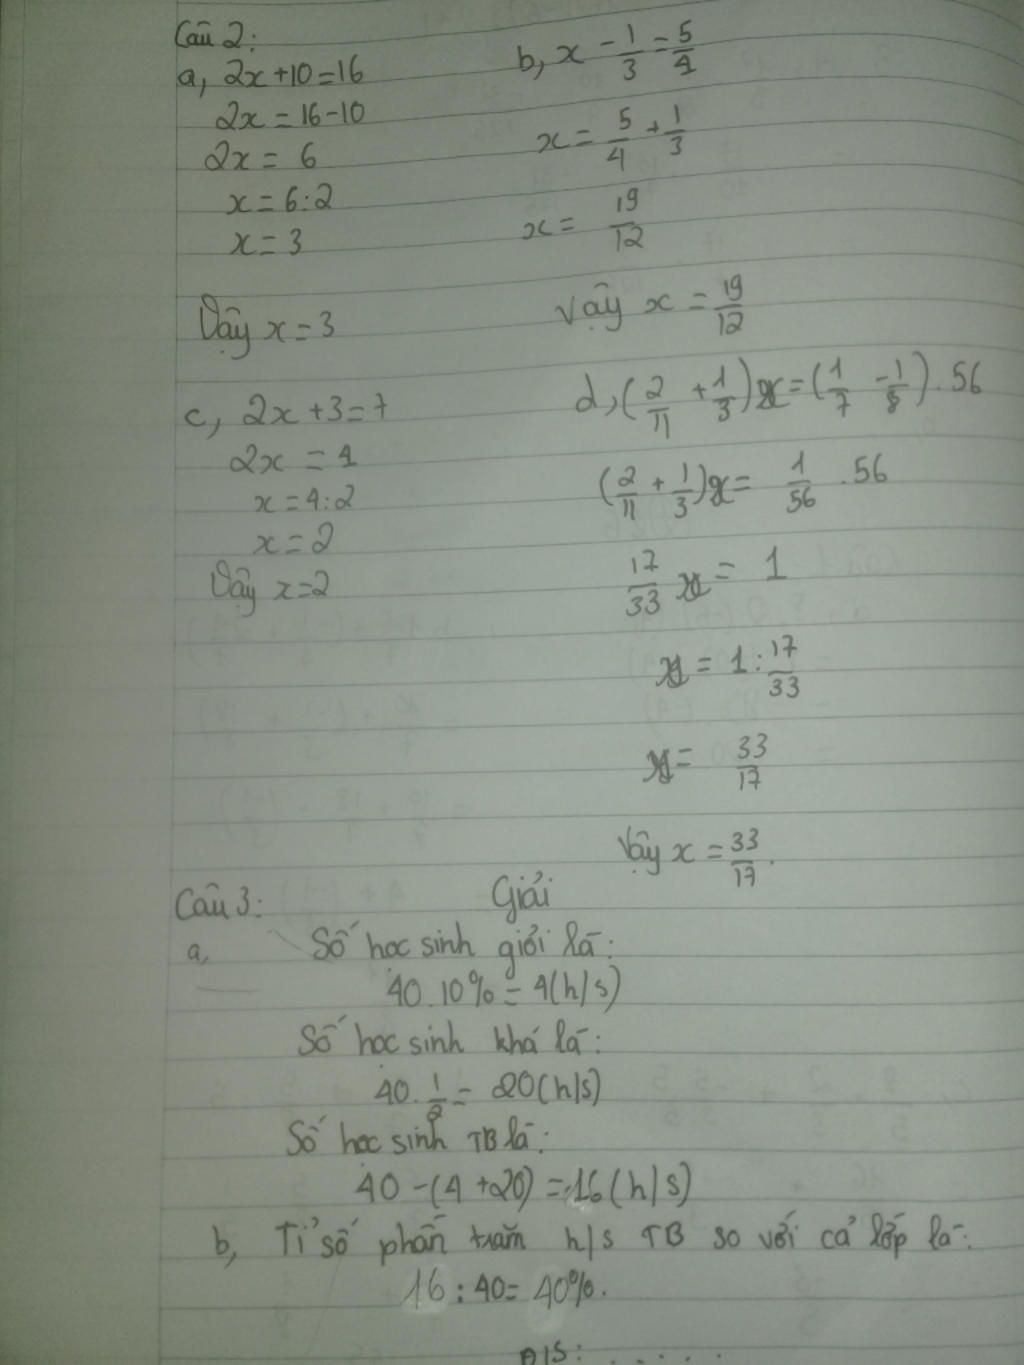 Câu 2:
a, 2x+10=16
2x = 16-10
2x = 6
x = 6:2
x = 3
Vậy x = 3
b, x - 1/3 = 5/4
x = 5/4 + 1/3
x = 19/12
Vậy x = 19/12
c, 2x+3=7
2x = 4
x = 4:2
x = 2
Vậy x=2
d, (2/11 + 1/3)x = (1/7 - 1/8) . 56
(2/11 + 1/3)x = 1/56 . 56
17/33 x = 1
x = 1 : 17/33
x = 33/17
Vậy x = 33/17.
Câu 3: Giải
a, Số học sinh giỏi là:
40.10% = 4(h/s)
Số học sinh khá là:
40. 1/2 = 20(h/s)
Số học sinh TB là:
40 - (4 +20) = 16 (h/s)
b, Tỉ số phần trăm h/s TB so với cả lớp là:
16 : 40 = 40%.
Đ/S: . . . . . .